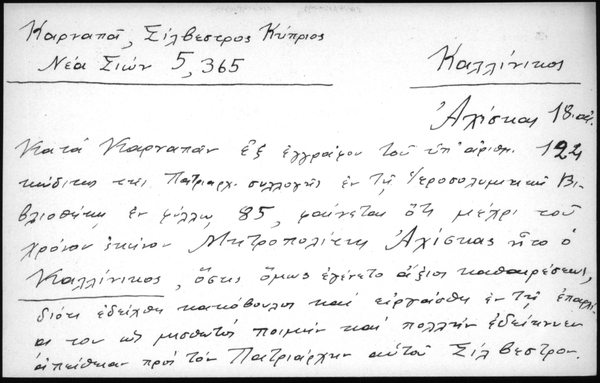 Καρναπᾶ, Σίλβεστρος Κύπριος
Νέα Σιών 5, 365
Καλλίνικος
Ἀχίσκας 18 αἰ.
Κατά Καρναπᾶν ἐξ ἐγγράφου τοῦ ὑπ' ἀριθμ. 124
κώδικος τῆς Πατριαρχ. συλλογῆς ἐν τῇ Ἱεροσολυμιτικῇ Βι-
βλιοθήκῃ, ἐν φύλλῳ 85, φαίνεται ὅτι μέχρι τοῦ
χρόνου ἐκείνου Μητροπολίτης Ἀχίσκας ἦτο ὁ
Καλλίνικος, ὅστις ὅμως ἐγένετο ἄξιος καθαιρέσεως,
διότι ἐδείχθη κακόβουλος καί εἰργάσθη ἐν τῇ ἐπαρχί-
ᾳ του ὡς μισθωτός ποιμήν καί πολλήν ἐδείκνυεν
ἀπείθειαν πρός τόν Πατριάρχην αὐτοῦ Σίλβεστρον.